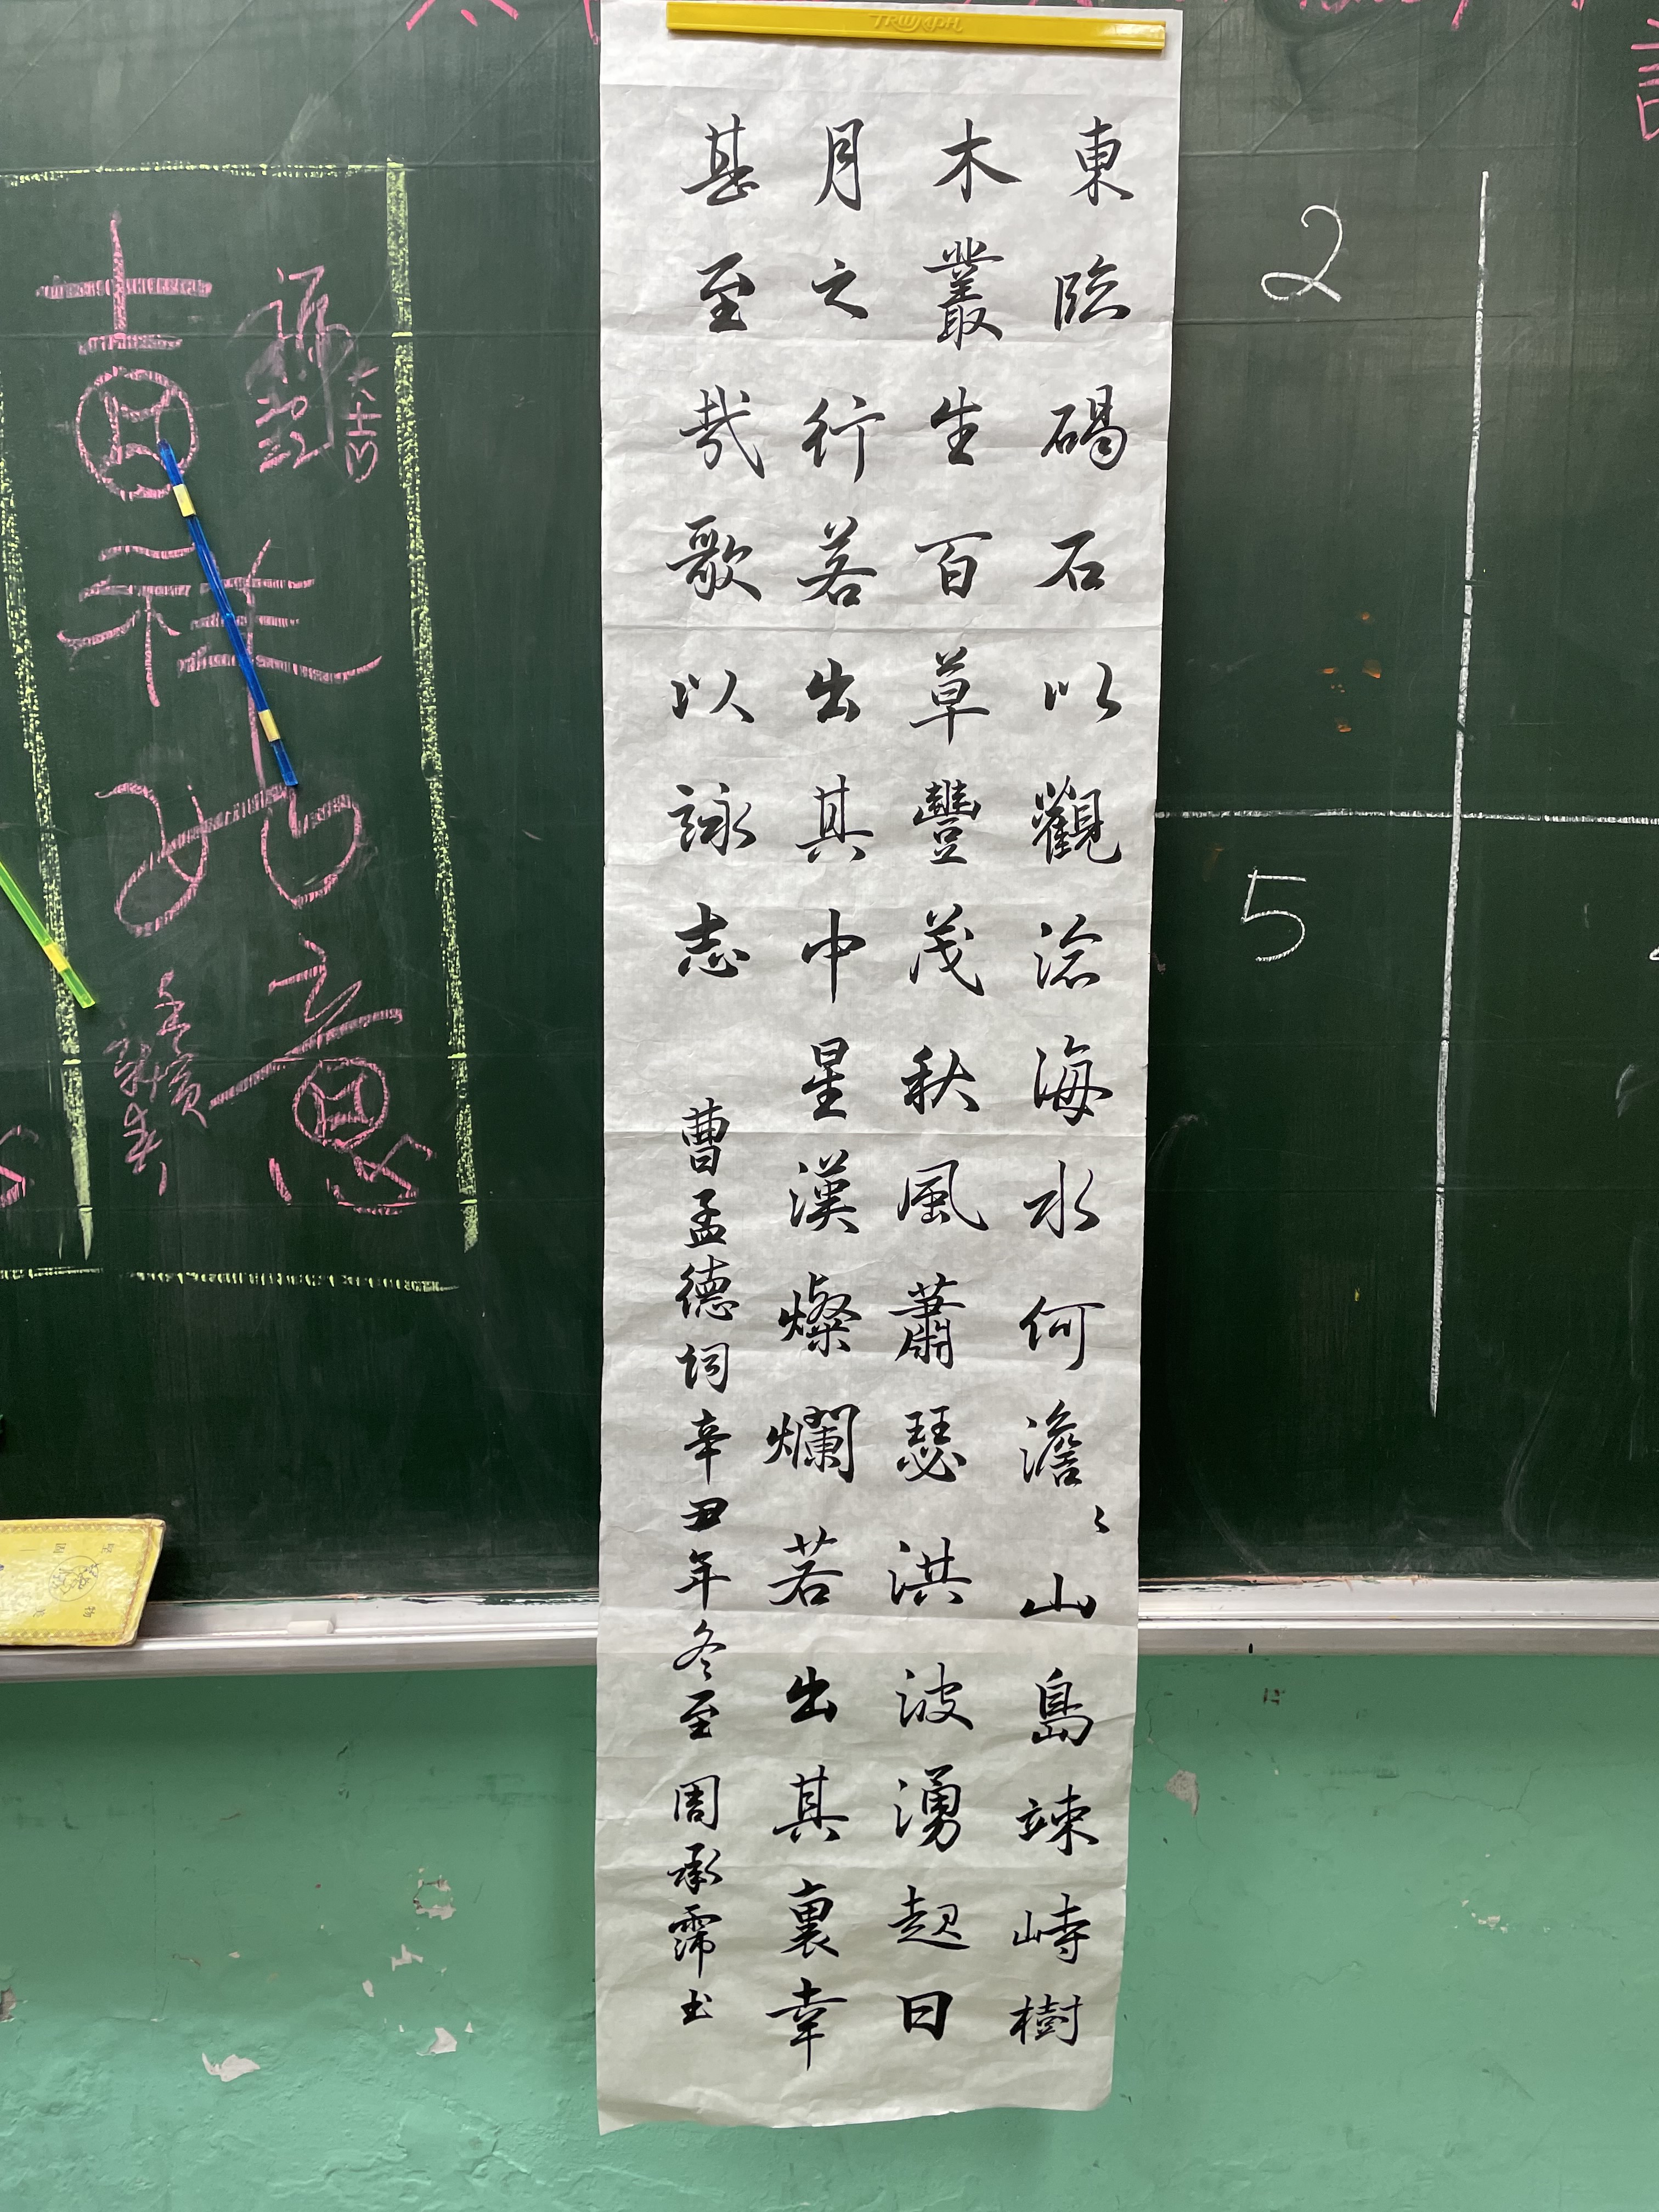 東臨碣石以觀滄海水何澹〻山島竦峙樹
木叢生百草豐茂秋風蕭瑟洪波湧起日
月之行若出其中星漢燦爛若出其裏幸
甚至哉歌以詠志 曹孟德詞辛丑年冬至 周承霈書
TRIUMPH
2
5
吉祥
如意